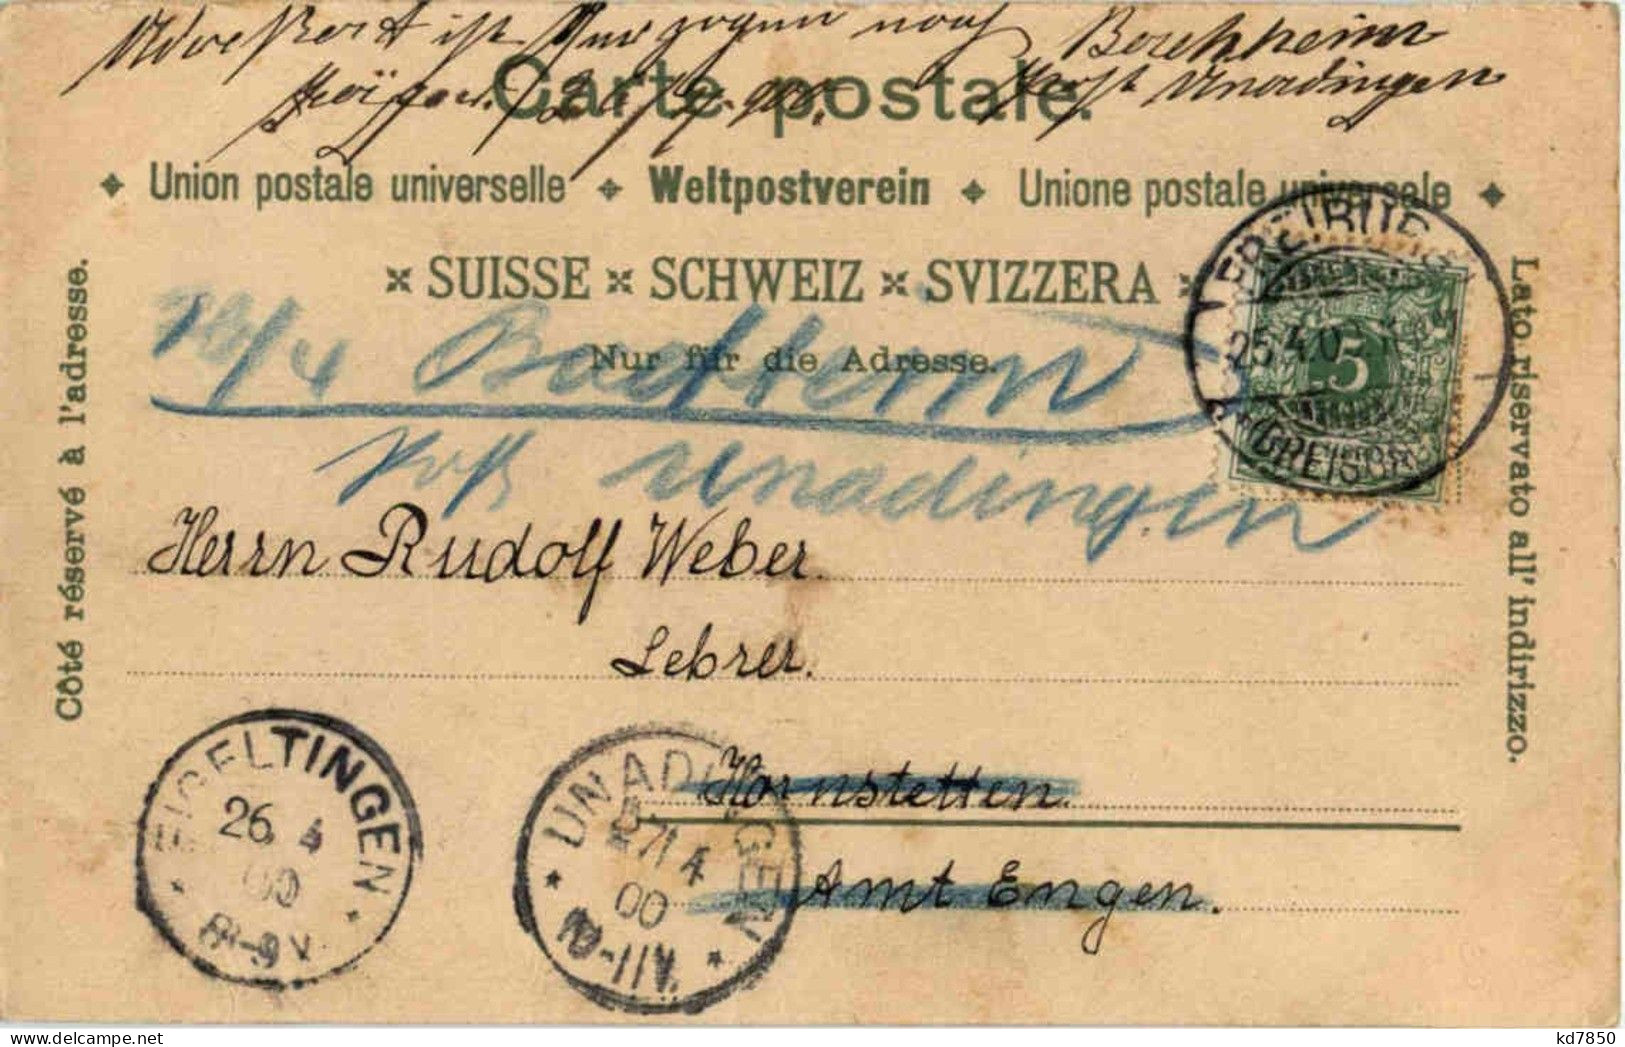 Adressat ist Umgezogen nach Bachheim
Post Unadingen
Carte postale.
Union postale universelle Weltpostverein Unione postale universale
SUISSE SCHWEIZ SVIZZERA
Nur für die Adresse.
Côté réservé à l'adresse.
Lato riservato all' indirizzo.
Post Unadingen
Herrn Rudolf Weber.
Lehrer.
Hornstetten.
Amt Engen.
FREIBURG
25 4 00
(BREISGAU)
5
EIGELTINGEN
26 4
00
8-9V
UNADINGEN
27 4
00
kd7850